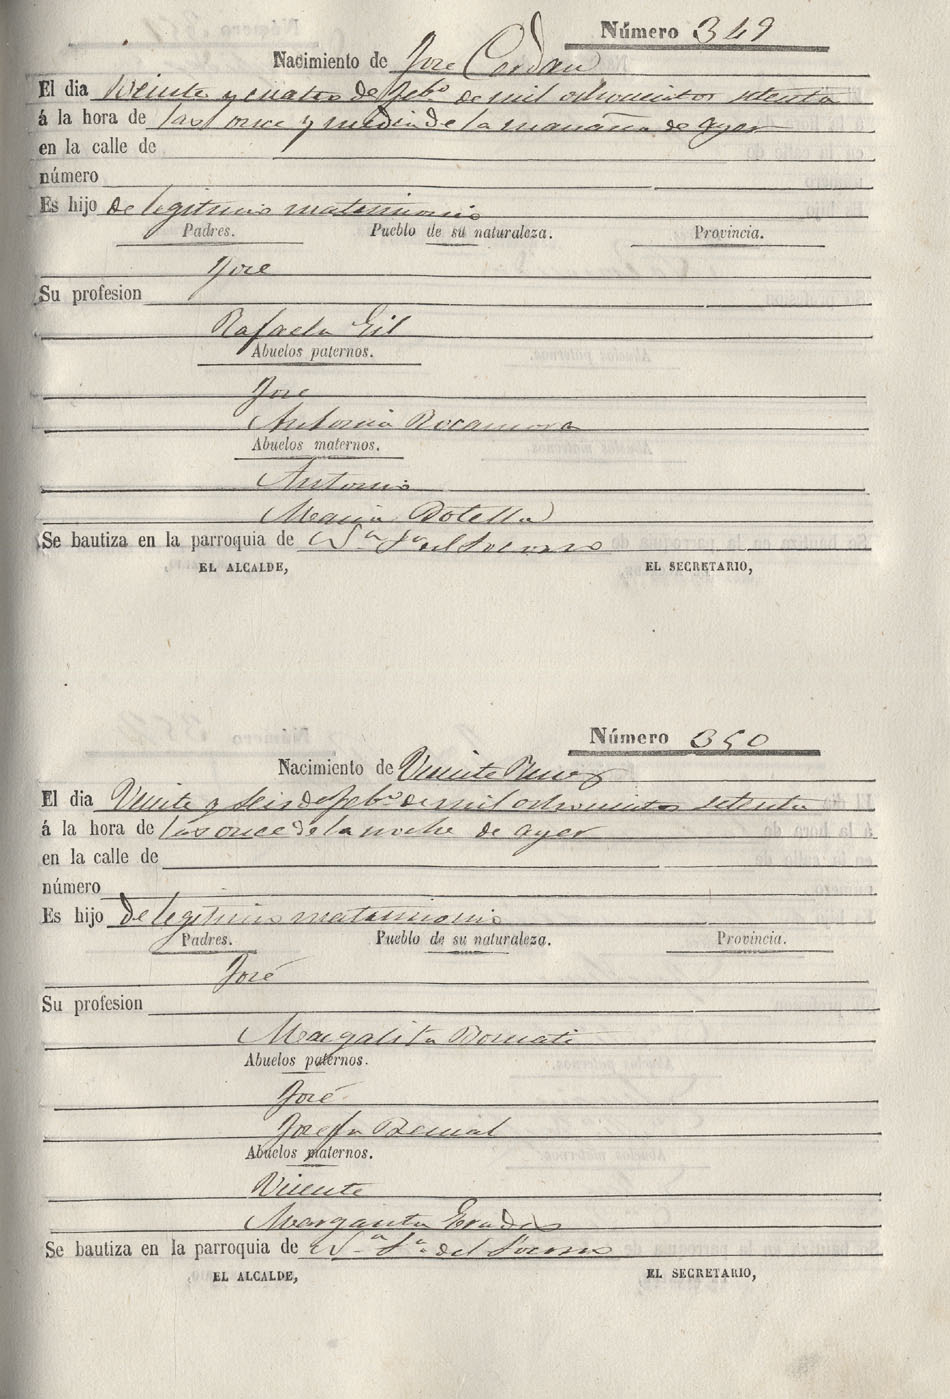 Número 349
Nacimiento de José Cerdán
El dia Veinte y cuatro de Febº de mil ochocientos setenta
á la hora de las once y media de la mañana de ayer
en la calle de
número
Es hijo de legitimo matrimonio
Padres. Pueblo de su naturaleza. Provincia.
José
Su profesion
Rafaela Gil
Abuelos paternos.
José
Antonia Rocamora
Abuelos maternos.
Antonio
Maria Botella
Se bautiza en la parroquia de Nª Sª del Socorro
EL ALCALDE, EL SECRETARIO,
Número 350
Nacimiento de Vicente Perez
El dia Veinte y seis de Febº de mil ochocientos setenta
á la hora de las once de la noche de ayer
en la calle de
número
Es hijo de legitimo matrimonio
Padres. Pueblo de su naturaleza. Provincia.
José
Su profesion
Margalita
Abuelos paternos.
José
Josefa Bernal
Abuelos maternos.
Vicente
Margarita
Se bautiza en la parroquia de Nª Sª del Socorro
EL ALCALDE, EL SECRETARIO,